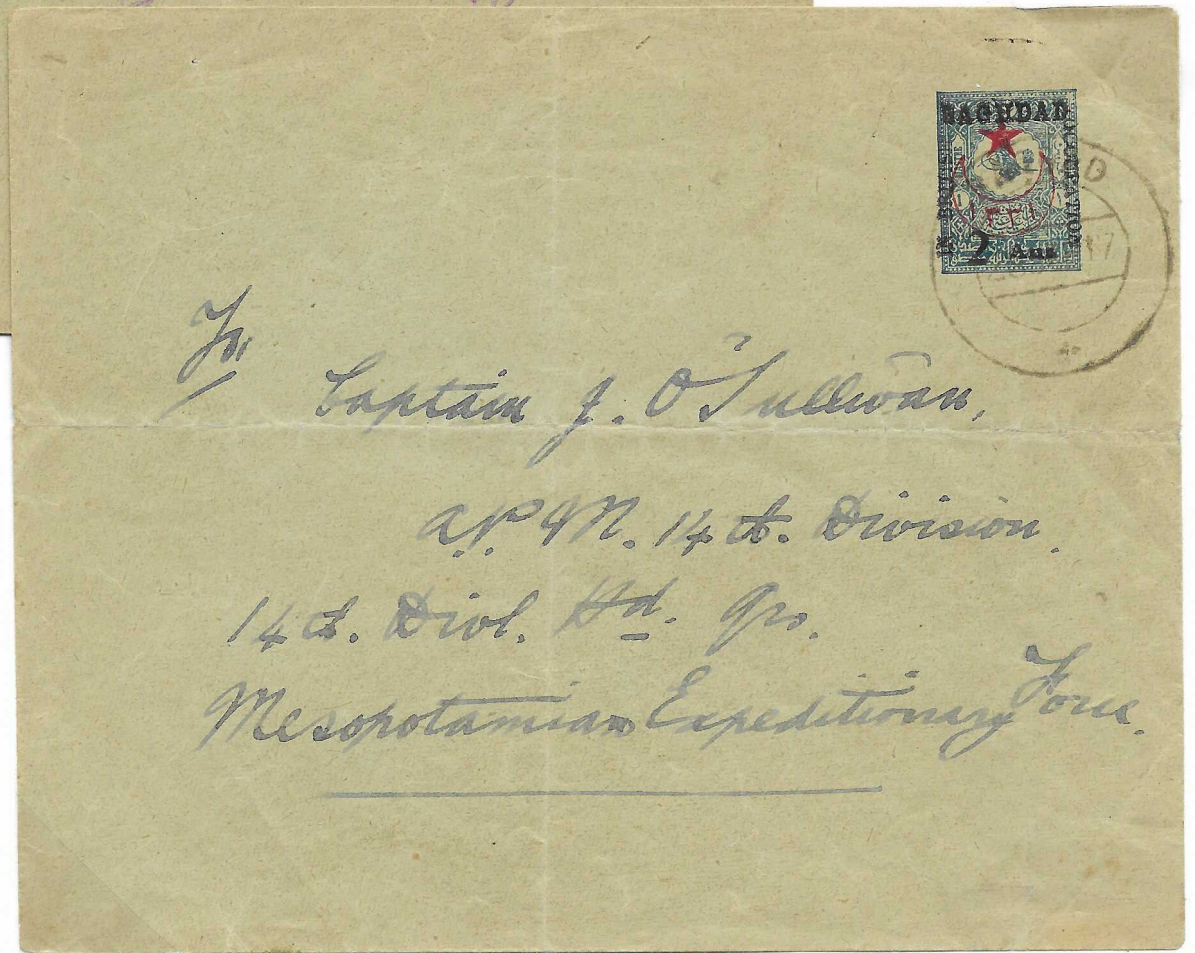 BAGHDAD
IN BRITISH
OCCUPATION
١ ١
١٣٣١
2 Ans
To,
Captain J. O'Sullivan,
A.P.M. 14th. Division.
14th. Divl. Hd. Qrs.
Mesopotamian Expeditionary Force.